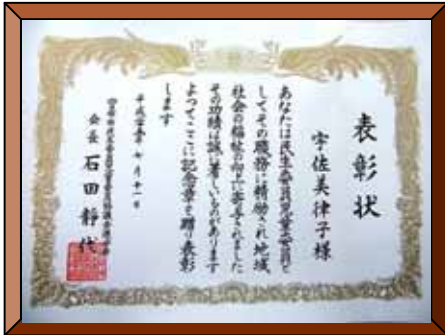 表彰状
宇佐美律子様
あなたは民生委員児童委員と
してその職務に精励され地域
社会の福祉の向上に寄与されました
その功績は誠に著しいものがあります
よってここに記念章を贈り表彰
します
平成 年 七月十一日
会長 石田静代